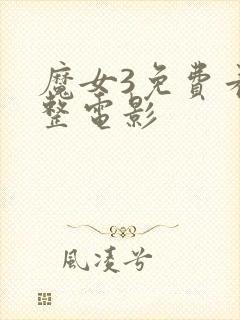 魔女3免費
整電影
風凌兮